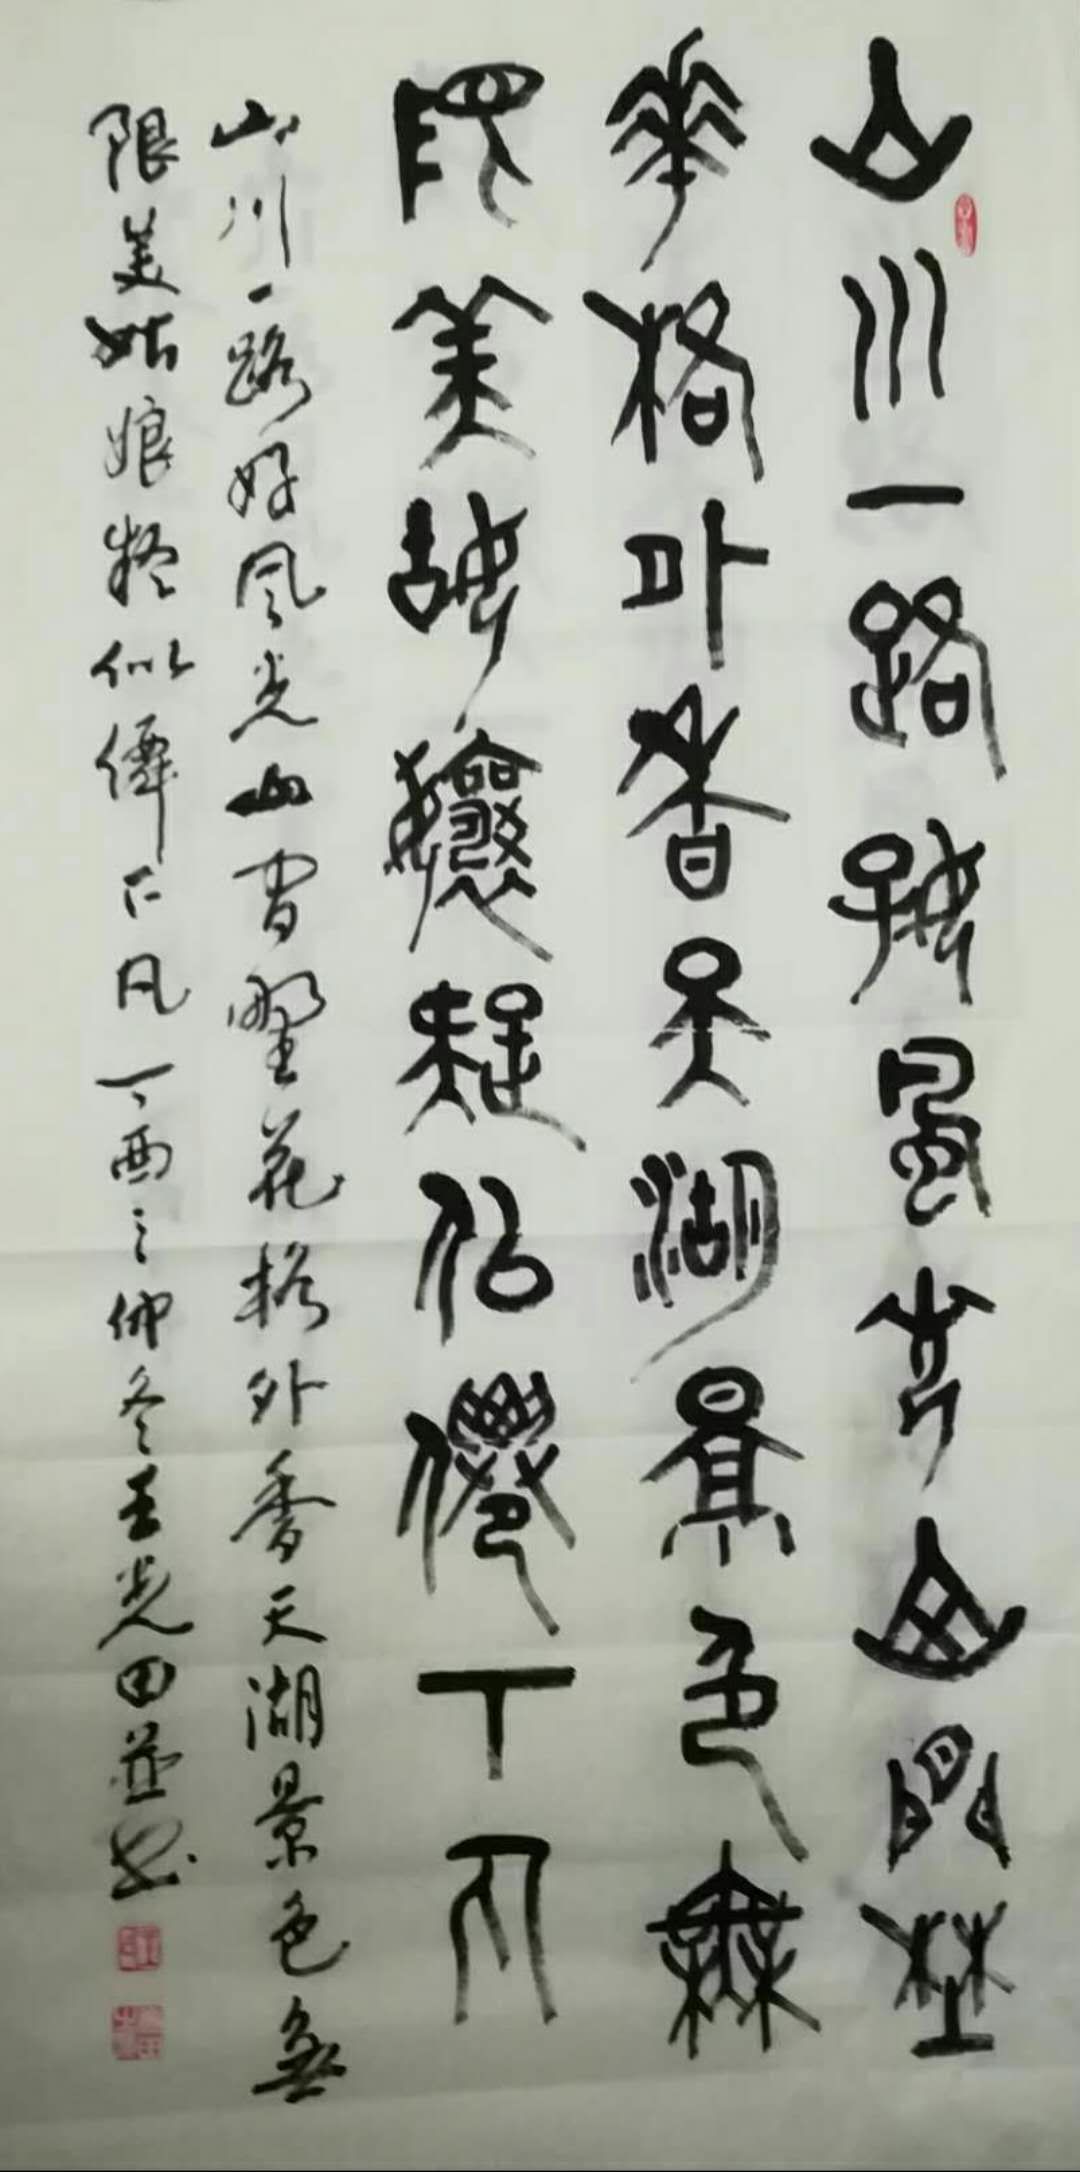 山川一路好風光山間野
華格外香天湖景色無
限美姑娘疑似僊下凡
山川一路好风光山间野花格外香天湖景色無
限美姑娘疑似僊下凡丁酉之仲冬王光田並书